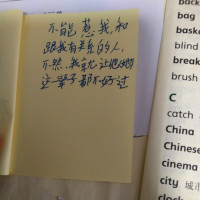 不能惹我,和
跟我有关系的人,
不然,我就让他她
这辈子都不好过
back
bag
basket
blind
break
brush
C
catch
China
Chinese
cinema
city 城市
clock